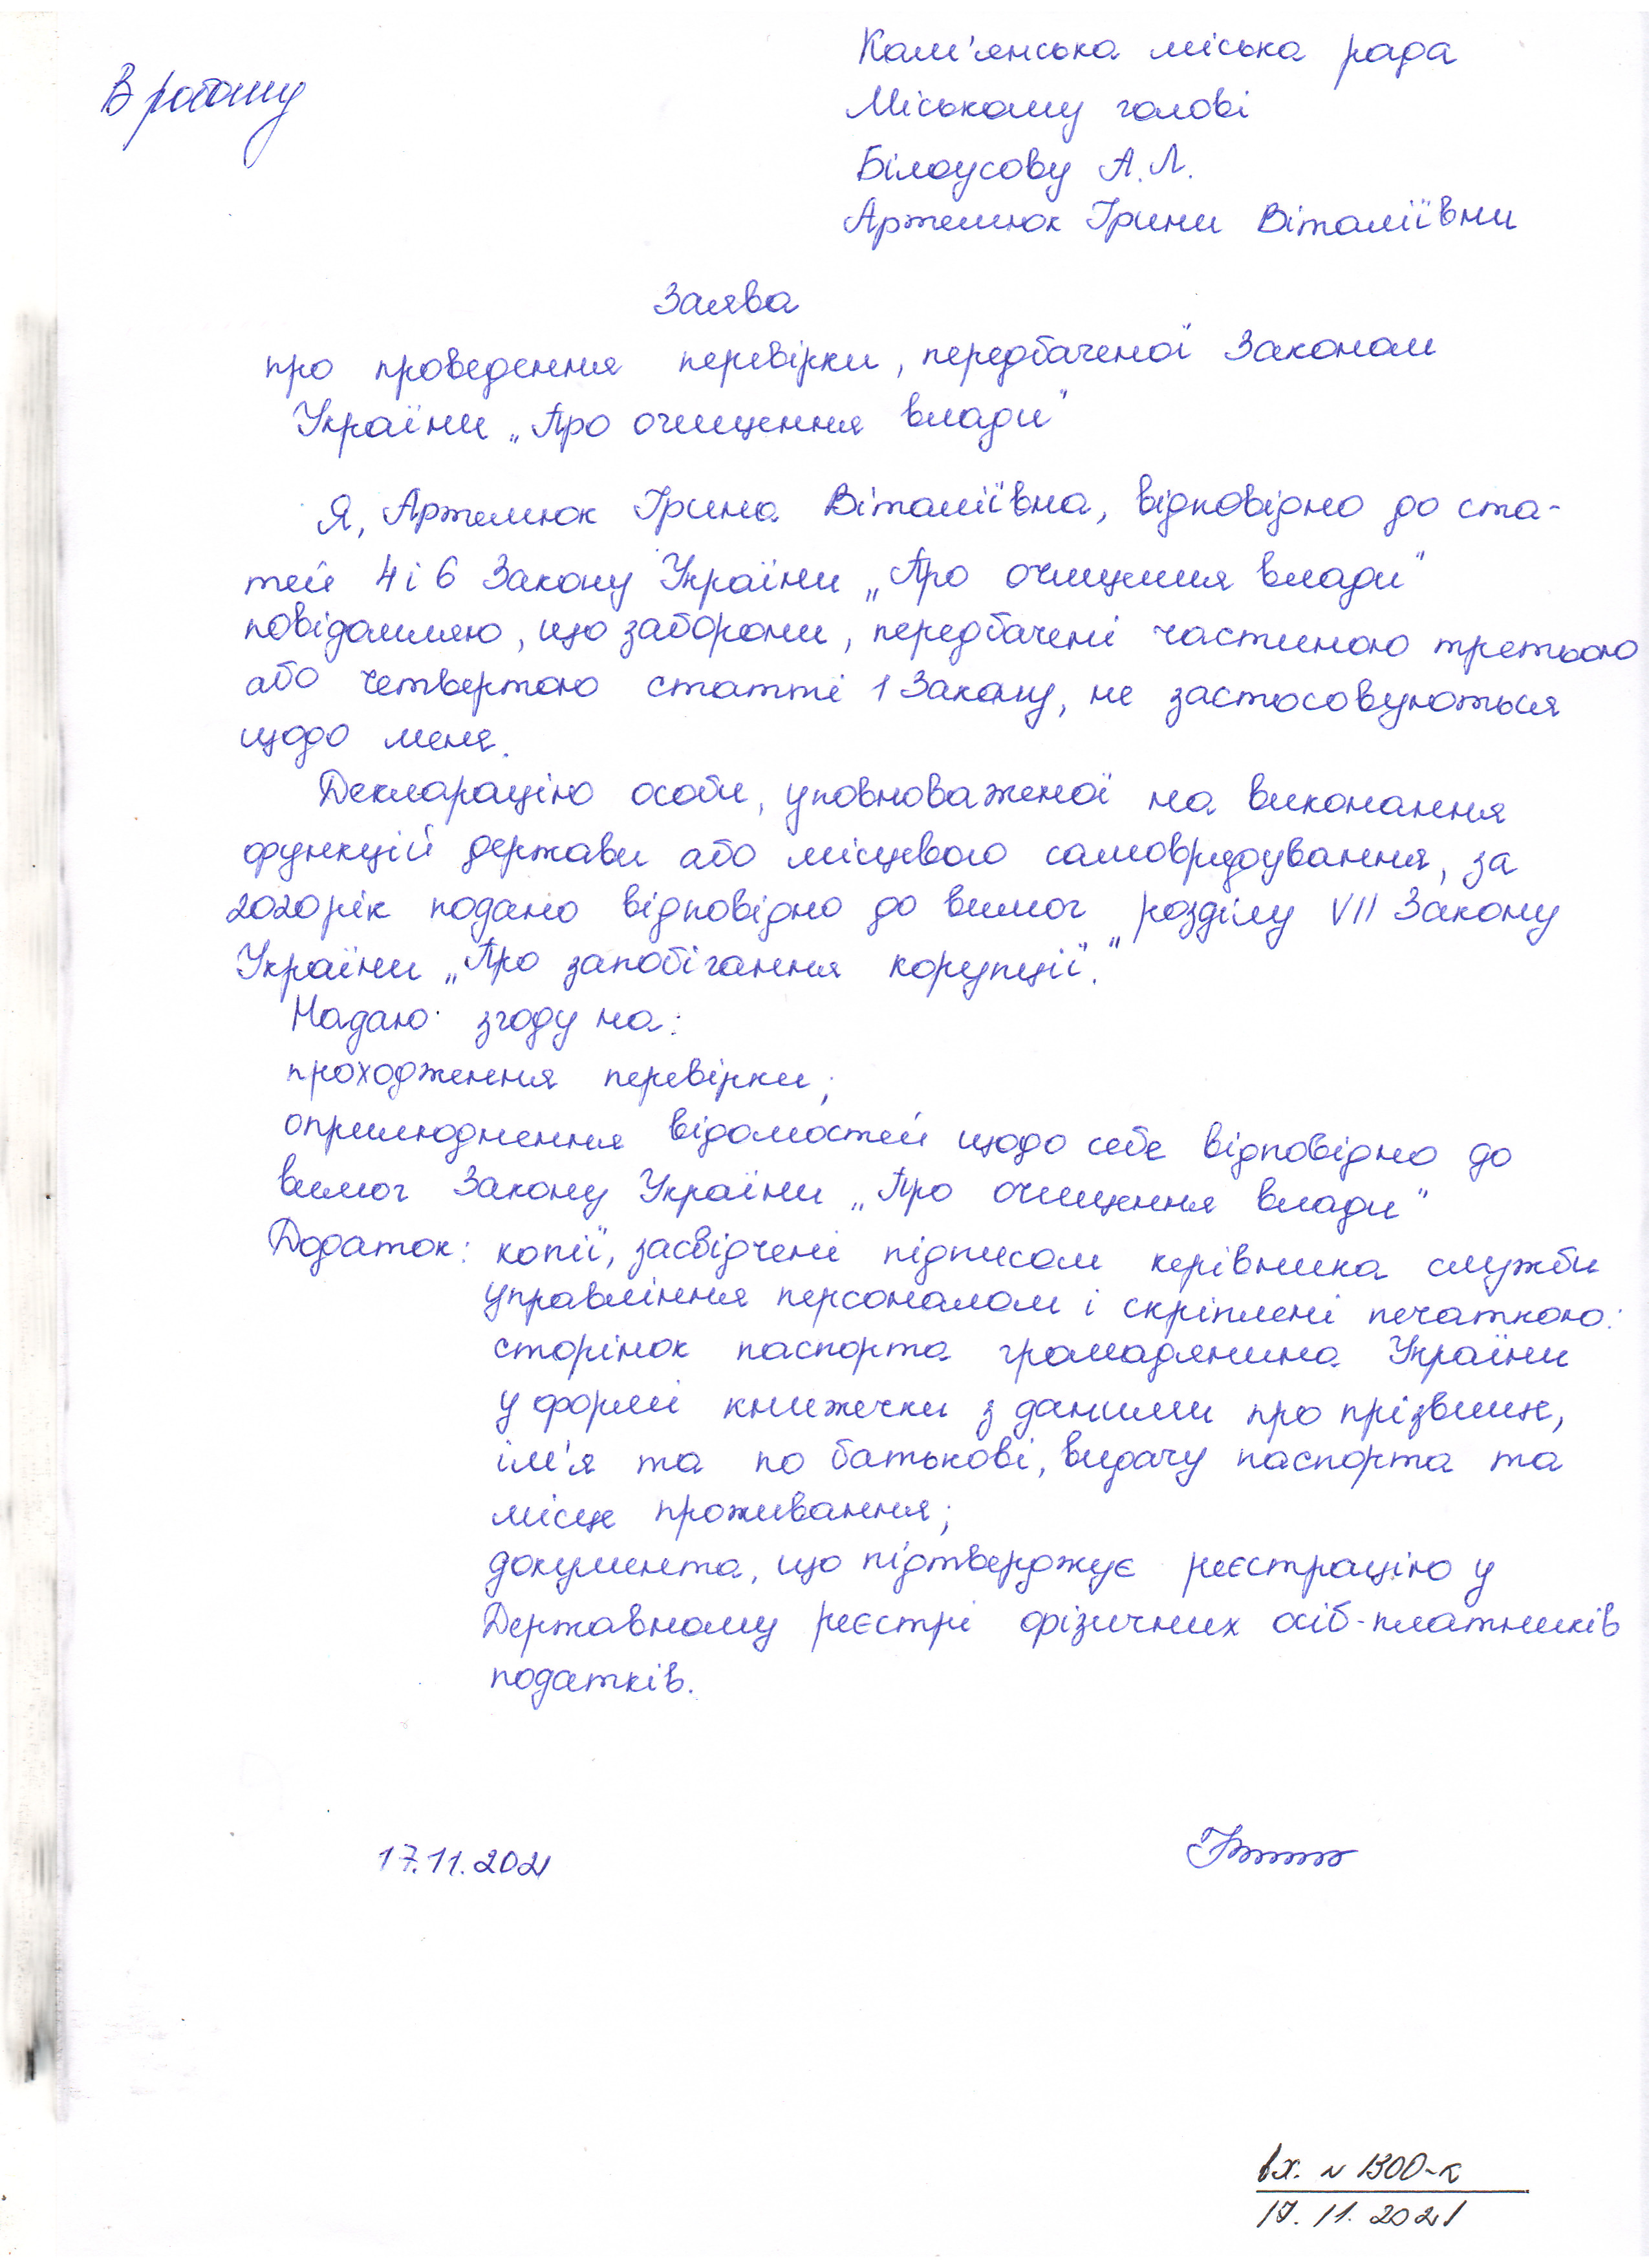 В роботу
Кам'янська міська рада
Міському голові
Білоусову А.Л.
Артемюк Ірини Віталіївни
Заява
про проведення перевірки, передбаченої Законом
України „Про очищення влади"
Я, Артемюк Ірина Віталіївна, відповідно до ста-
тей 4 і 6 Закону України „Про очищення влади"
повідомляю, що заборони, передбачені частиною третьою
або четвертою статті 1 Закону, не застосовуються
щодо мене.
Декларацію особи, уповноваженої на виконання
функцій держави або місцевого самоврядування, за
2020 рік подано відповідно до вимог розділу VII Закону
України „Про запобігання корупції".
Надаю згоду на:
проходження перевірки;
оприлюднення відомостей щодо себе відповідно до
вимог Закону України „Про очищення влади"
Додаток: копії, засвідчені підписом керівника служби
управління персоналом і скріплені печаткою:
сторінок паспорта громадянина України
у формі книжечки з даними про прізвище,
ім'я та по батькові, видачу паспорта та
місце проживання;
документа, що підтверджує реєстрацію у
Державному реєстрі фізичних осіб-платників
податків.
17.11.2021
вх. № 1300-к
17.11.2021